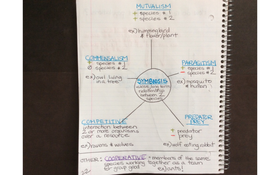 MUTUALISM
+ species #1
+ species #2
ex) hummingbird
& flower/plant
COMMENSALISM
+ species #1
Ø species #2
ex) owl living
in a tree
PARASITISM
+ species #1
- species #2
ex) mosquito
& human
SYMBIOSIS
relationship
between 2
species
COMPETITIVE
interaction between
2 or more organisms over
a resource
ex) humans & wolves
PREDATOR
PREY
+ predator
- prey
ex) wolf eating rabbit
OTHER: COOPERATIVE - members of the same
species working together as a team
for group good
ex) ants